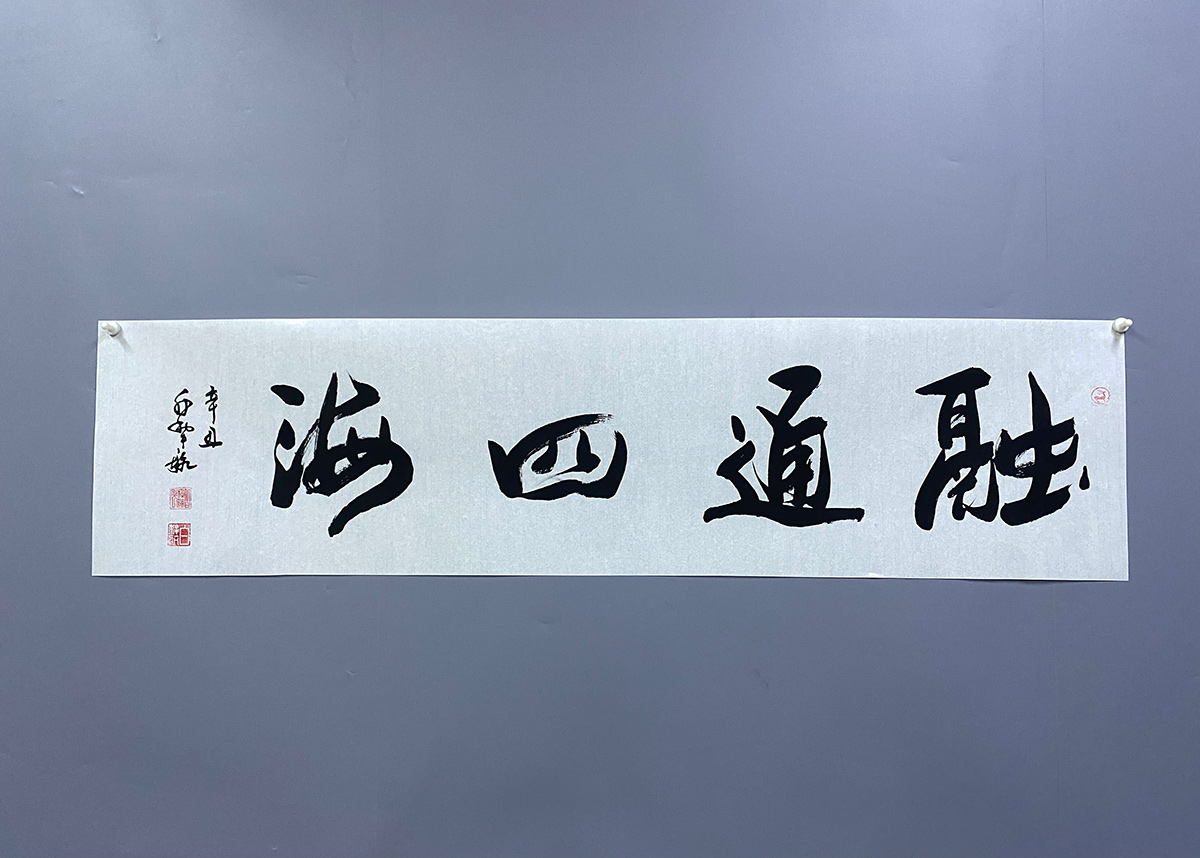 融通四海
辛丑